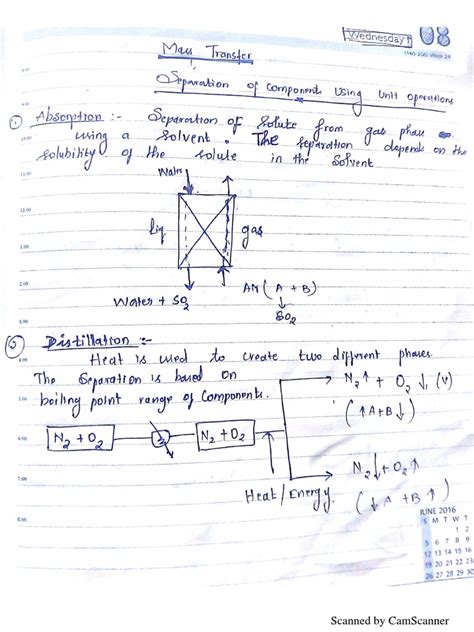 Wednesday 08
Mass Transfer
Separation of Components Using Unit operations
① Absorption :- Separation of solute from gas phase
using a solvent. The separation depends on the
solubility of the solute in the Solvent
Water
liq gas
Water + SO2 Air (A + B)
SO2
② Distillation :-
Heat is used to create two different phases.
The Separation is based on
boiling point range of Components.
N2 ↑ + O2 ↓ (V)
(↑A+B↓)
N2 + O2 N2 + O2
N2 ↓ + O2 ↑
Heat/Energy. (↓A +B ↑)
JUNE 2016
S M T W T
1 2
5 6 7 8 9
12 13 14 15 16
19 20 21 22 23
26 27 28 29 30
Scanned by CamScanner